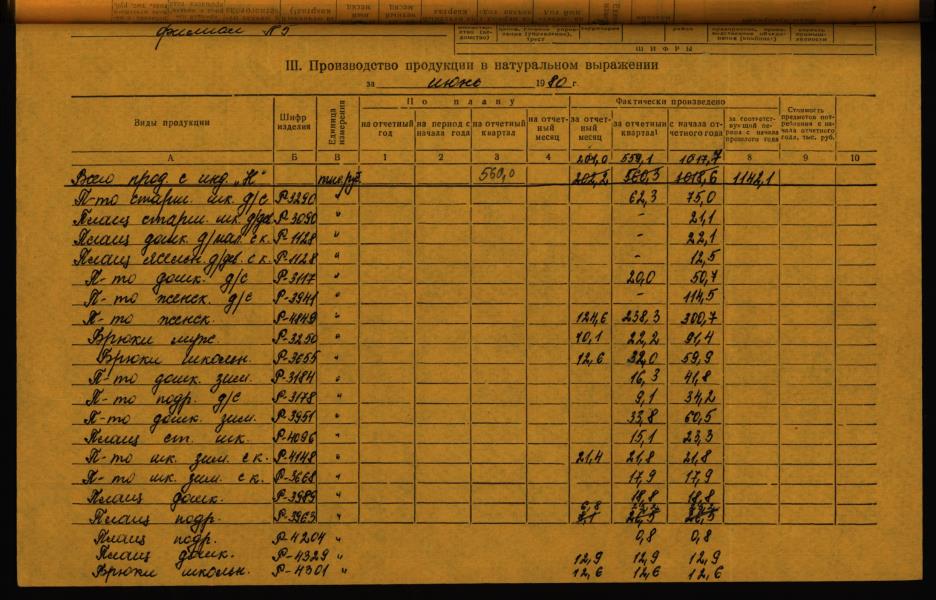 филиал №5
ШИФРЫ
III. Производство продукции в натуральном выражении
за июнь 1980 г.
Виды продукции Шифр изделия Единица измерения По плану Фактически произведено Стоимость предметов потребления с начала отчетного года, тыс. руб.
на отчетный год на период с начала года на отчетный квартал на отчетный месяц за отчетный месяц за отчетный квартал с начала отчетного года за соответствующий период с начала прошлого года
А Б В 1 2 3 4 5 6 7 8 9 10
201,0 559,1 1017,7
Всего прод с инд. „Н" тыс руб. 560,0 202,2 560,3 1018,6 1142,1
П-то старш. шк. д/с Р-3290 " 62,3 75,0
Плащ старш. шк. д/дев Р-3090 " - 21,1
Плащ дошк. д/мал. с к. Р-1128 " - 22,1
Плащ ясельн. д/дев. с к. Р-1128 " - 12,5
П-то дошк. д/с Р-3117 " 20,0 50,7
П-то женск. д/с Р-3941 " - 114,5
П-то женск. Р-4149 " 124,6 238,3 300,7
Брюки муж. Р-3250 " 10,1 22,2 91,4
Брюки школьн. Р-3655 " 12,6 32,0 59,9
П-то дошк. зим. Р-3184 " 16,3 41,8
П-то подр. д/с Р-3178 " 9,1 34,2
П-то дошк. зим. Р-3951 " 33,8 60,5
Плащ ст. шк. Р-4096 " 15,1 23,3
П-то шк. зим. с к. Р-4148 " 21,4 21,8 21,8
П-то шк. зим. с к. Р-3668 " 17,9 17,9
Плащ дошк. Р-3989 " 18,8 18,8
Плащ подр. Р-3963 "
Плащ подр. Р-4204 " 0,8 0,8
Плащ дошк. Р-4329 " 12,9 12,9 12,9
Брюки школьн. Р-4301 " 12,6 12,6 12,6